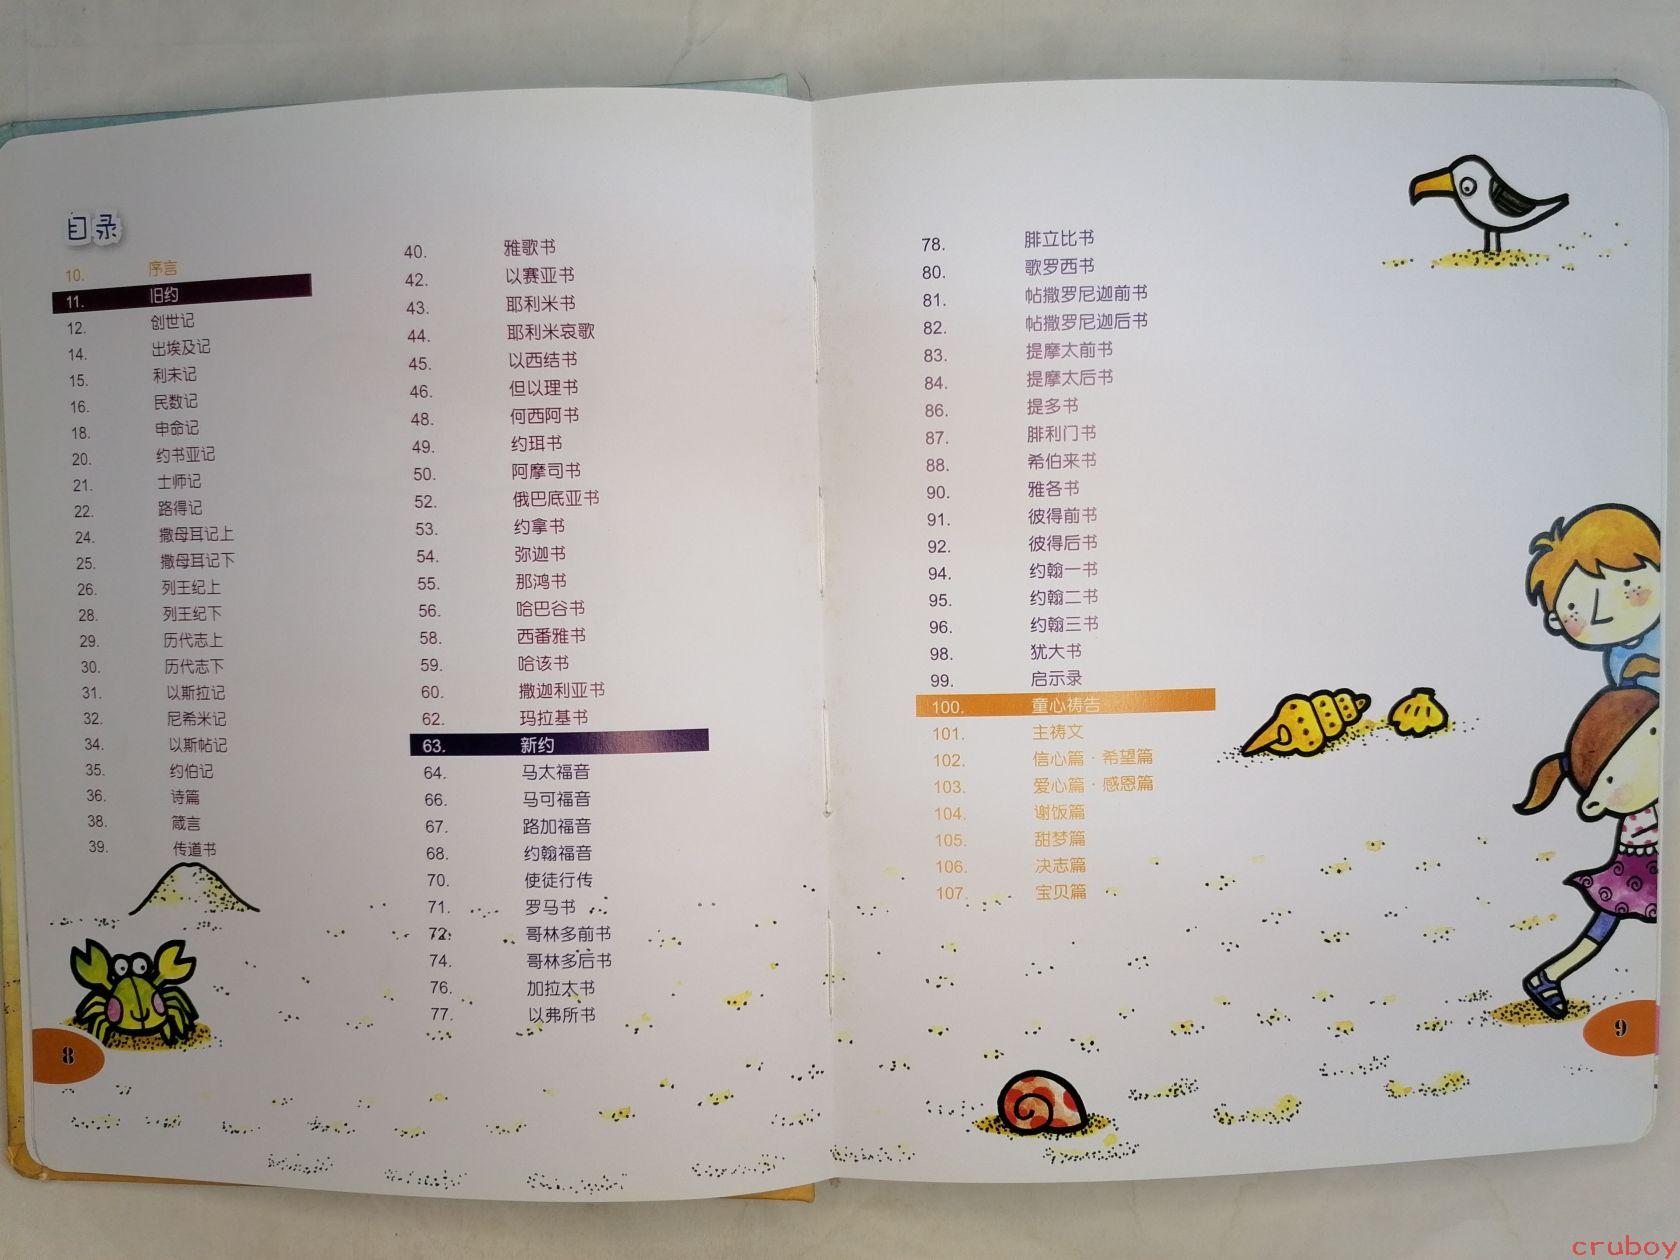 目录
10. 序言
11. 旧约
12. 创世记
14. 出埃及记
15. 利未记
16. 民数记
18. 申命记
20. 约书亚记
21. 士师记
22. 路得记
24. 撒母耳记上
25. 撒母耳记下
26. 列王纪上
28. 列王纪下
29. 历代志上
30. 历代志下
31. 以斯拉记
32. 尼希米记
34. 以斯帖记
35. 约伯记
36. 诗篇
38. 箴言
39. 传道书
8
40. 雅歌书
42. 以赛亚书
43. 耶利米书
44. 耶利米哀歌
45. 以西结书
46. 但以理书
48. 何西阿书
49. 约珥书
50. 阿摩司书
52. 俄巴底亚书
53. 约拿书
54. 弥迦书
55. 那鸿书
56. 哈巴谷书
58. 西番雅书
59. 哈该书
60. 撒迦利亚书
62. 玛拉基书
63. 新约
64. 马太福音
66. 马可福音
67. 路加福音
68. 约翰福音
70. 使徒行传
71. 罗马书
72. 哥林多前书
74. 哥林多后书
76. 加拉太书
77. 以弗所书
78. 腓立比书
80. 歌罗西书
81. 帖撒罗尼迦前书
82. 帖撒罗尼迦后书
83. 提摩太前书
84. 提摩太后书
86. 提多书
87. 腓利门书
88. 希伯来书
90. 雅各书
91. 彼得前书
92. 彼得后书
94. 约翰一书
95. 约翰二书
96. 约翰三书
98. 犹大书
99. 启示录
100. 童心祷告
101. 主祷文
102. 信心篇·希望篇
103. 爱心篇·感恩篇
104. 谢饭篇
105. 甜梦篇
106. 决志篇
107. 宝贝篇
9
cruboy